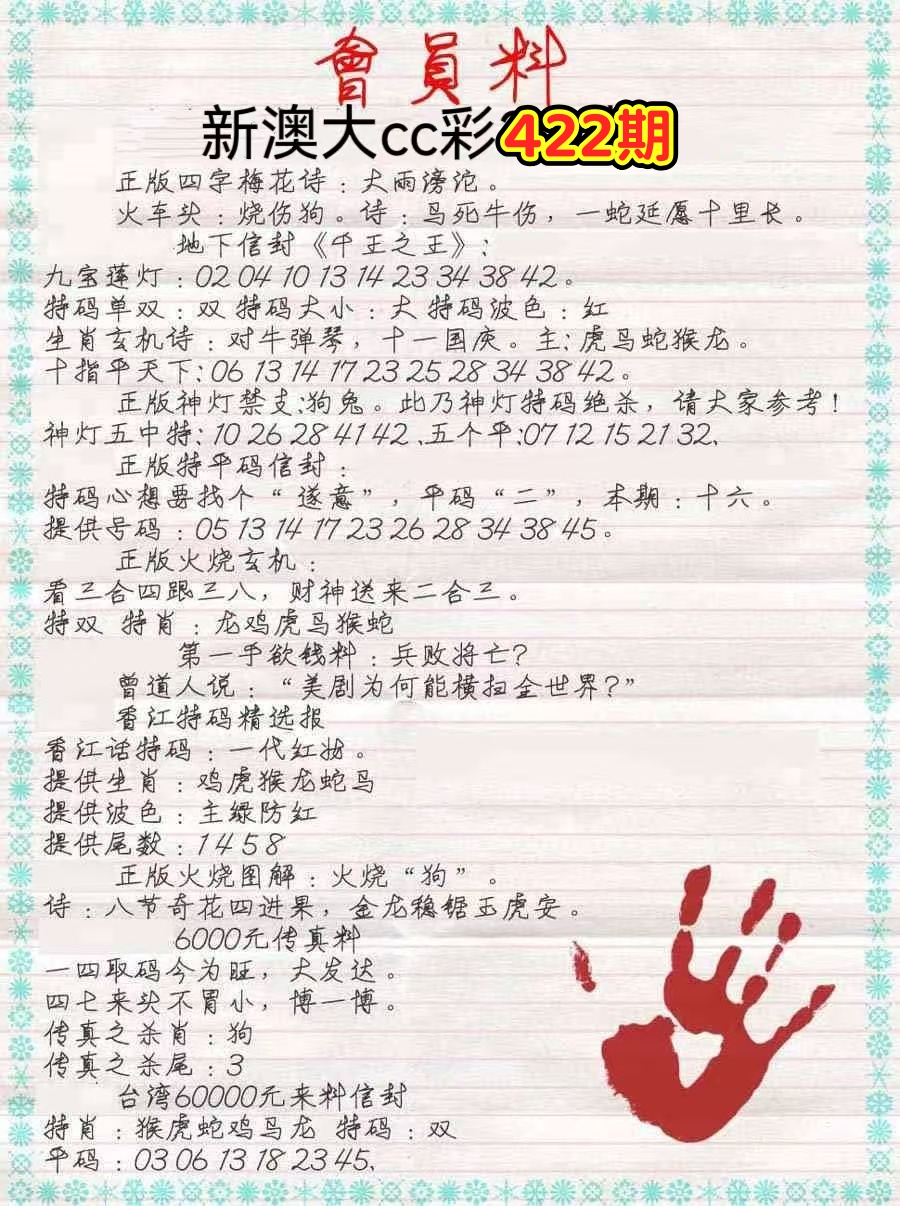 會員料
新澳大cc彩422期
正版四字梅花诗：大雨滂沱。
火车头：烧伤狗。诗：鸟死牛伤，一蛇延愿十里长。
地下信封《千王之王》：
九宝莲灯：02 04 10 13 14 23 34 38 42。
特码单双：双 特码大小：大 特码波色：红
生肖玄机诗：对牛弹琴，十一国庆。主：虎马蛇猴龙。
十指平天下：06 13 14 17 23 25 28 34 38 42。
正版神灯禁支:狗兔。此乃神灯特码绝杀，请大家参考！
神灯五中特：10 26 28 41 42、五个平:07 12 15 21 32、
正版特平码信封：
特码心想要找个“遂意”，平码“二”，本期：十六。
提供号码：05 13 14 17 23 26 28 34 38 45。
正版火烧玄机：
看三合四跟三八，财神送来二合三。
特双 特肖：龙鸡虎马猴蛇
第一手欲钱料：兵败将亡？
曾道人说：“美剧为何能横扫全世界？”
香江特码精选报
香江话特码：一代红妆。
提供生肖：鸡虎猴龙蛇马
提供波色：主绿防红
提供尾数：1 4 5 8
正版火烧图解：火烧“狗”。
诗：八节奇花四进果，金龙稳锯玉虎安。
6000元传真料
一四取码今为旺，大发达。
四七来头不冒小，博一博。
传真之杀肖：狗
传真之杀尾：3
台湾60000元来料信封
特肖：猴虎蛇鸡马龙 特码：双
平码：03 06 13 18 23 45、